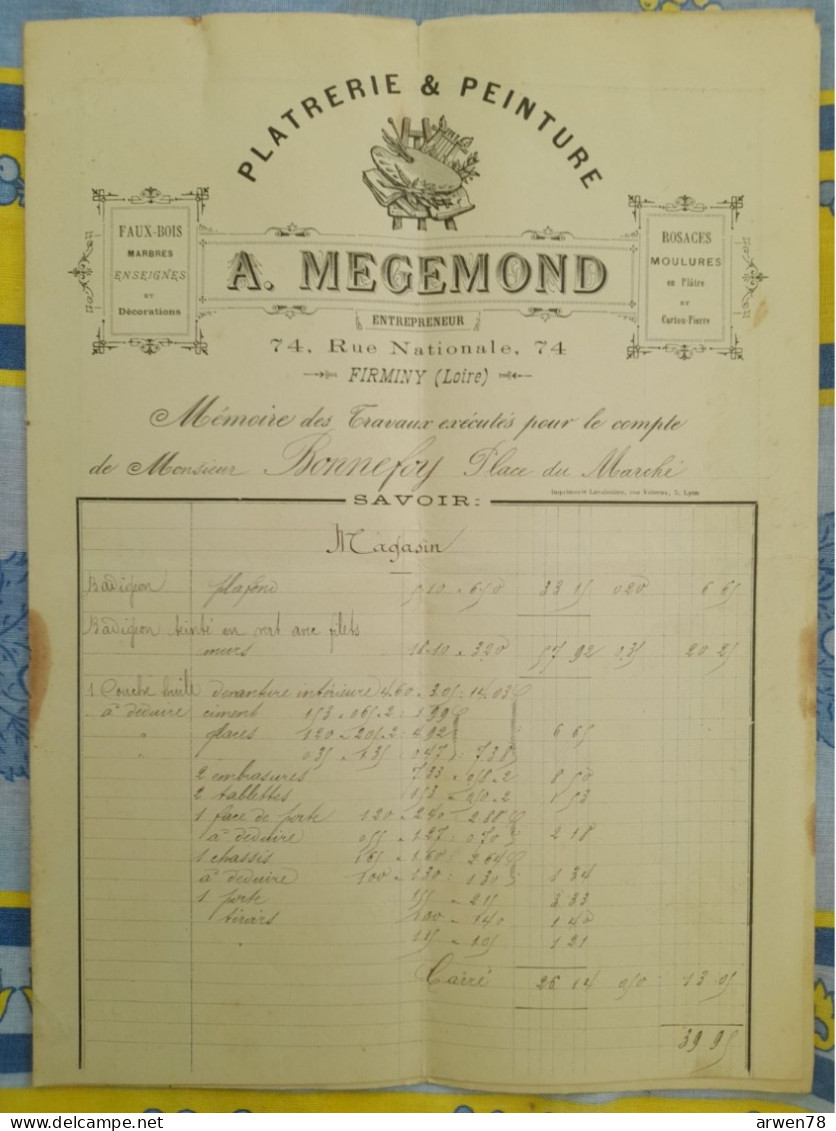 PLATRERIE & PEINTURE
FAUX-BOIS
MARBRES
ENSEIGNES
ET
Décorations
A. MEGEMOND
ENTREPRENEUR
ROSACES
MOULURES
en Plâtre
ET
Carton-Pierre
74, Rue Nationale, 74
FIRMINY (Loire)
Mémoire des Travaux exécutés pour le compte
de Monsieur Bonnefoy Place du Marché
Imprimerie rue 5, Lyon
SAVOIR:
Magasin
Badigeon plafond 5.10 × 6.50 33 15 0 20 6 65
Badigeon teinté en vert avec filets
murs 18.10 × 3.20 57 92 0.35 20 25
1 Couche huile devanture intérieure 4.60 × 3.05 = 14.03
à déduire ciment 153 × 065 × 2 = 1 99
" glaces 120 × 205 × 2 = 4 92 6 65
" 035 × 135 = 047 = 7 38
2 embrasures 7.33 × 058 × 2 8 50
2 tablettes 153 × 050 × 2 1 53
1 face de porte 120 × 240 = 2 88
à déduire 055 × 127 = 070 2 18
1 chassis 165 × 160 = 2 64
à déduire 100 × 130 = 1 30 1 34
1 porte 155 × 215 3 33
tiroirs 100 × 140 1 40
" 115 × 105 1 21
Carré 26 14 0 50 13 05
39 95
arwen78